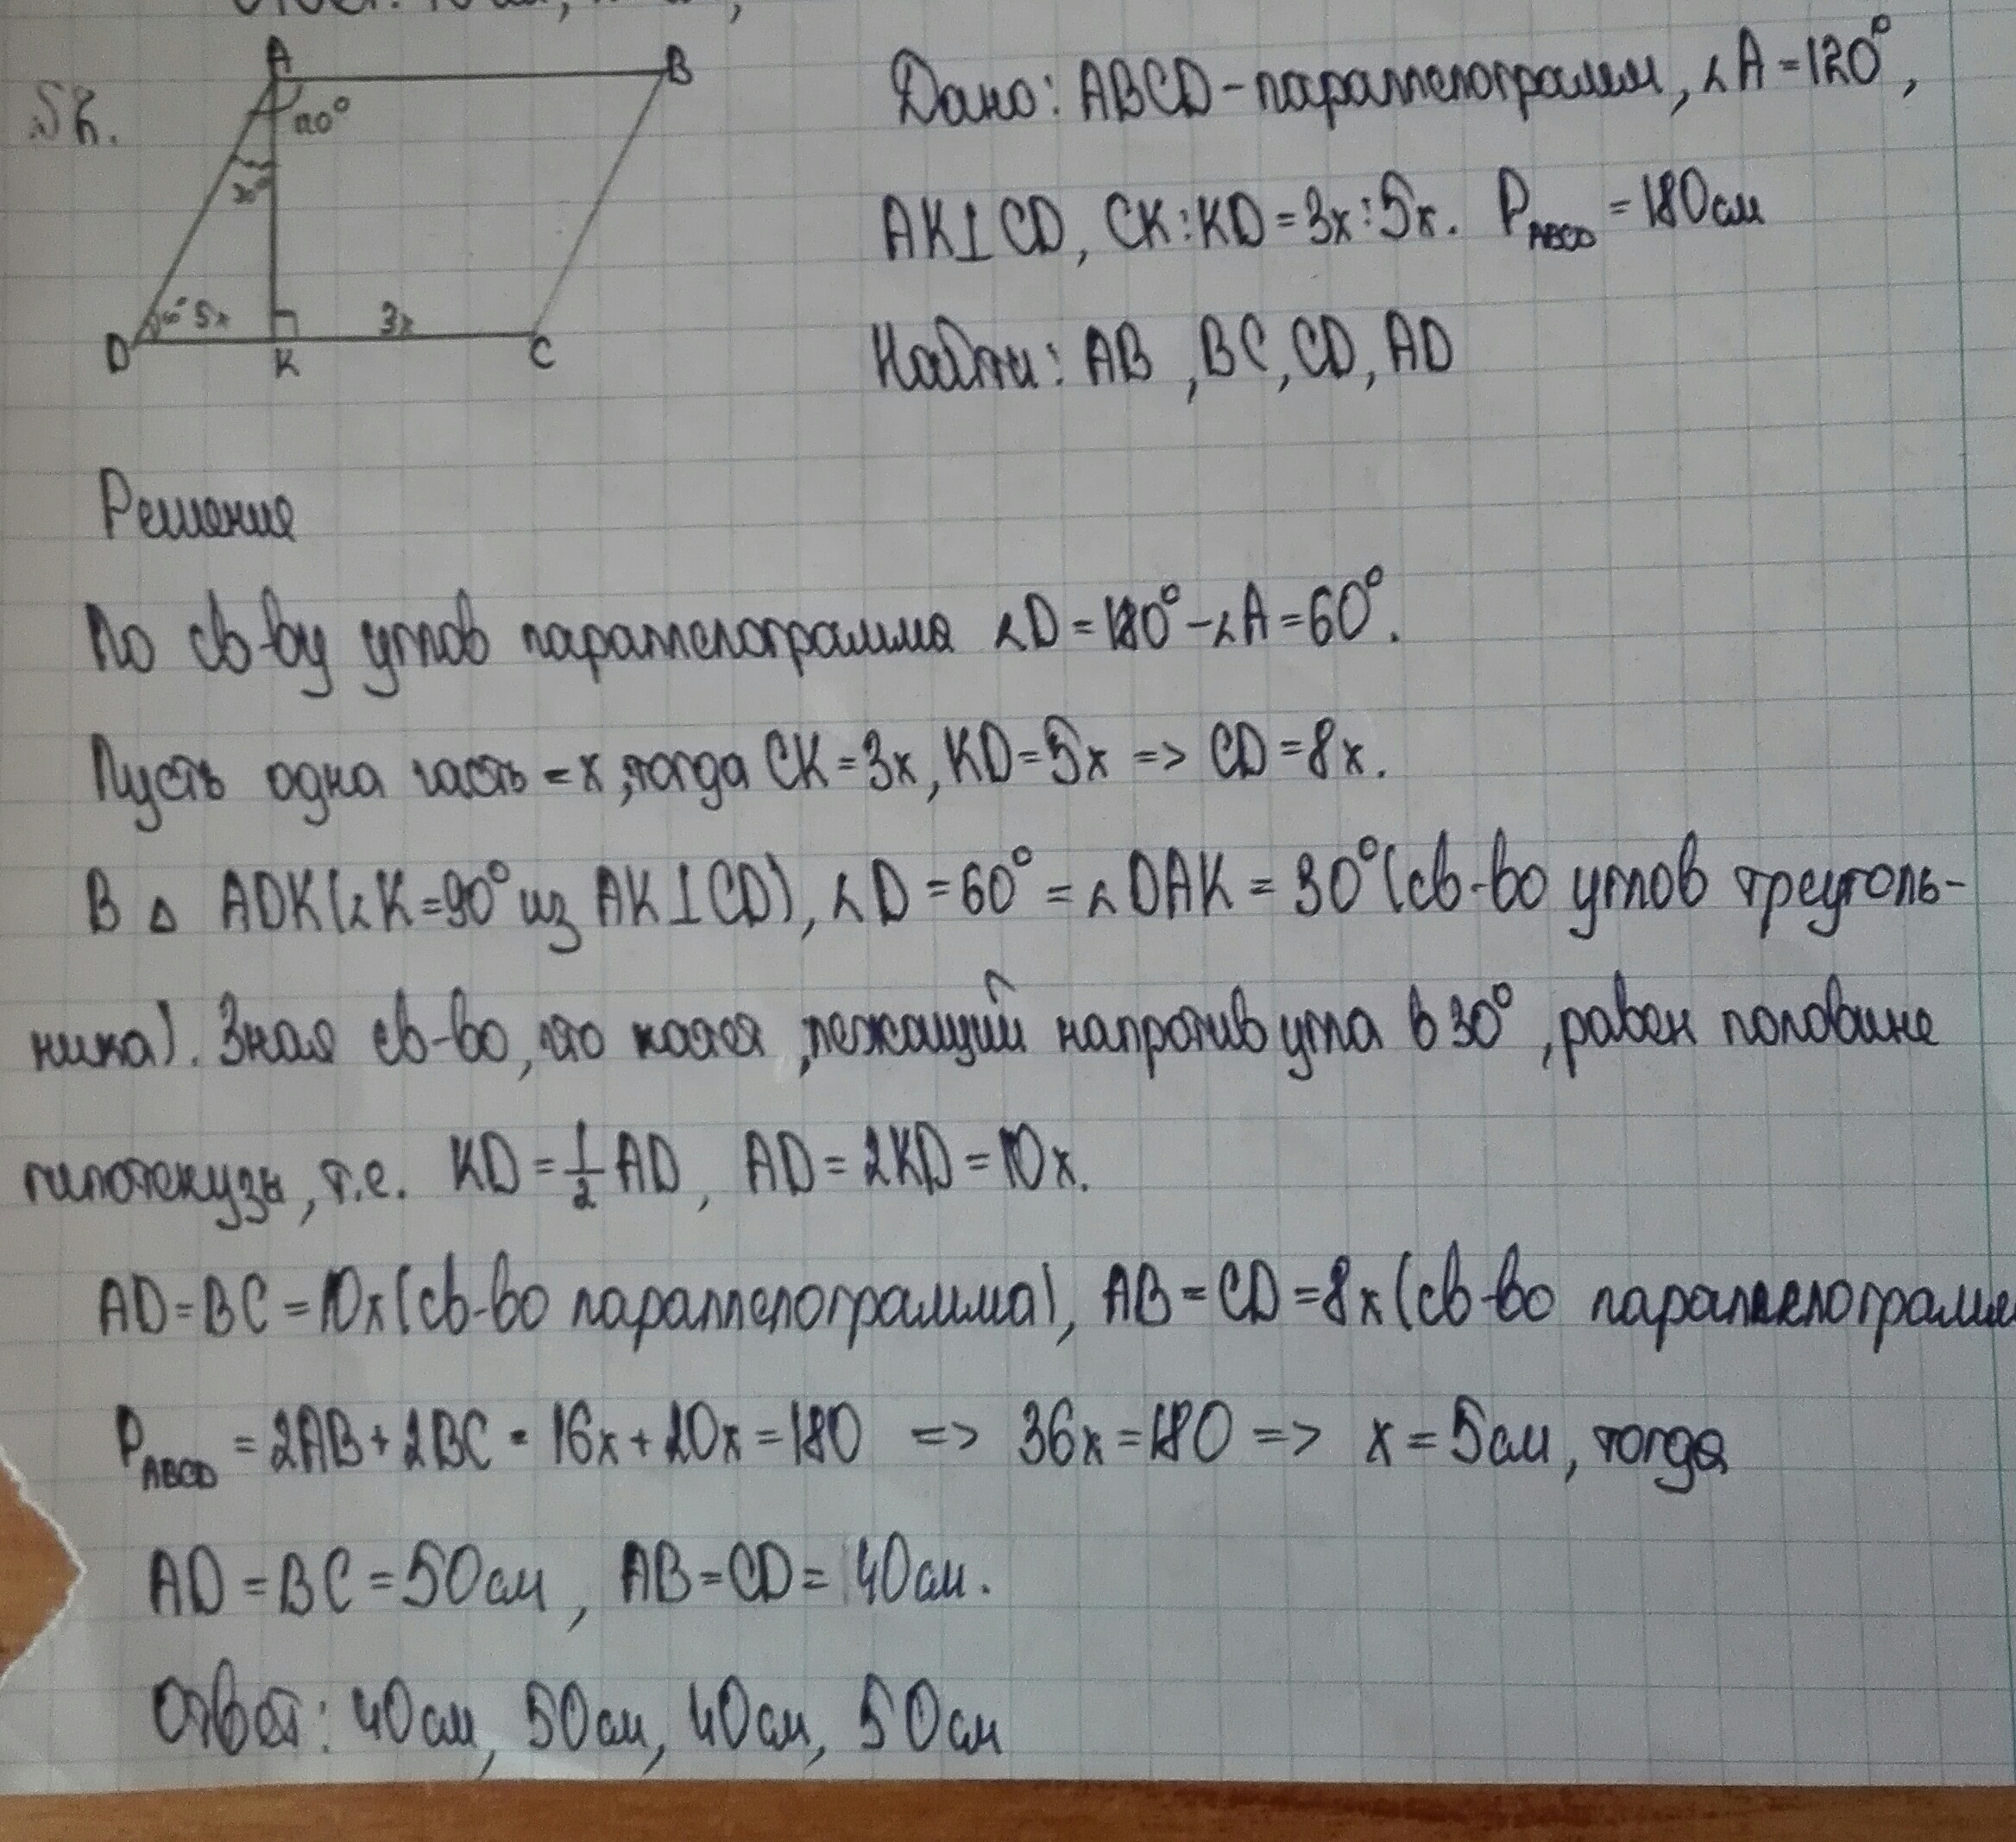 A
B
120°
30°
60°
5x
3x
D
K
C
Дано: ABCD-параллелограмм, ∠A=120°,
AK⊥CD, CK:KD=3x:5x. P_ABCD=180см
Найти: AB, BC, CD, AD
Решение
По св-ву углов параллелограмма ∠D=180°-∠A=60°.
Пусть одна часть = x, тогда CK=3x, KD=5x => CD=8x.
В △ ADK(∠K=90° из AK⊥CD), ∠D=60° = ∠DAK = 30°(св-во углов треуголь-
ника). Зная св-во, что катет, лежащий напротив угла в 30°, равен половине
гипотенузы, т.е. KD=1/2 AD, AD=2KD=10x.
AD=BC=10x(св-во параллелограмма), AB=CD=8x(св-во параллелограмма
P_ABCD=2AB+2BC=16x+20x=180 => 36x=180 => x=5см, тогда
AD=BC=50см, AB=CD=40см.
Ответ: 40см, 50см, 40см, 50см